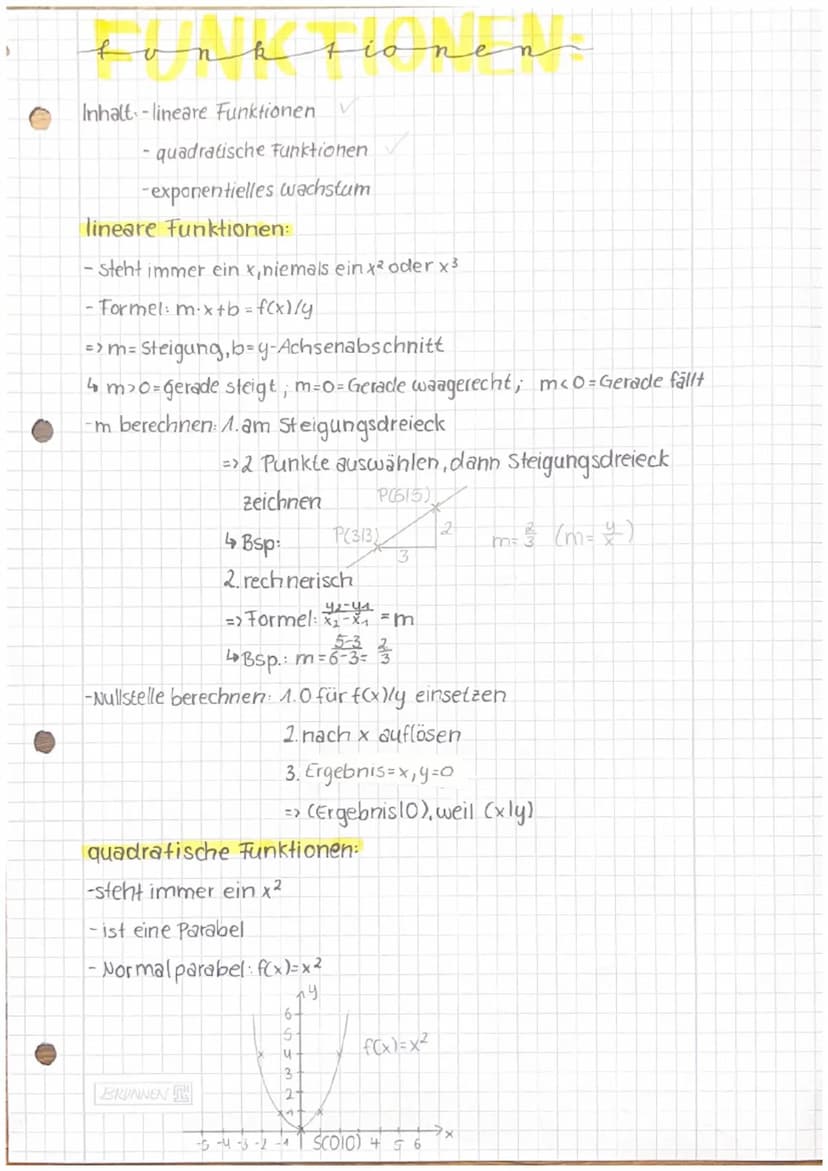 FUNKTIONEN:
funktionen
Inhalt: - lineare Funktionen ✓
- quadratische Funktionen ✓
- exponentielles Wachstum
lineare Funktionen:
- steht immer ein x, niemals ein x² oder x³
- Formel: m·x+b = f(x)/y
=> m= Steigung, b= y-Achsenabschnitt
↳ m>0=Gerade steigt ; m=0=Gerade waagerecht; m<0=Gerade fällt
- m berechnen: 1. am Steigungsdreieck
=> 2 Punkte auswählen, dann Steigungsdreieck
zeichnen P(6|5)
↳ Bsp: P(3|3) 3 2 m= 2/3 (m= y/x)
2. rechnerisch
=> Formel: y₂-y₁/x₂-x₁ = m
↳ Bsp.: m = 5-3/6-3 = 2/3
- Nullstelle berechnen: 1. 0 für f(x)/y einsetzen
2. nach x auflösen
3. Ergebnis=x, y=0
=> (Ergebnis|0), weil (x|y)
quadratische Funktionen:
- steht immer ein x²
- ist eine Parabel
- Normalparabel: f(x)=x²
y
6
5
4 f(x)=x²
3
2
1
BRUNNEN
-5 -4 -3 -2 -1 S(0|0) 4 5 6 x